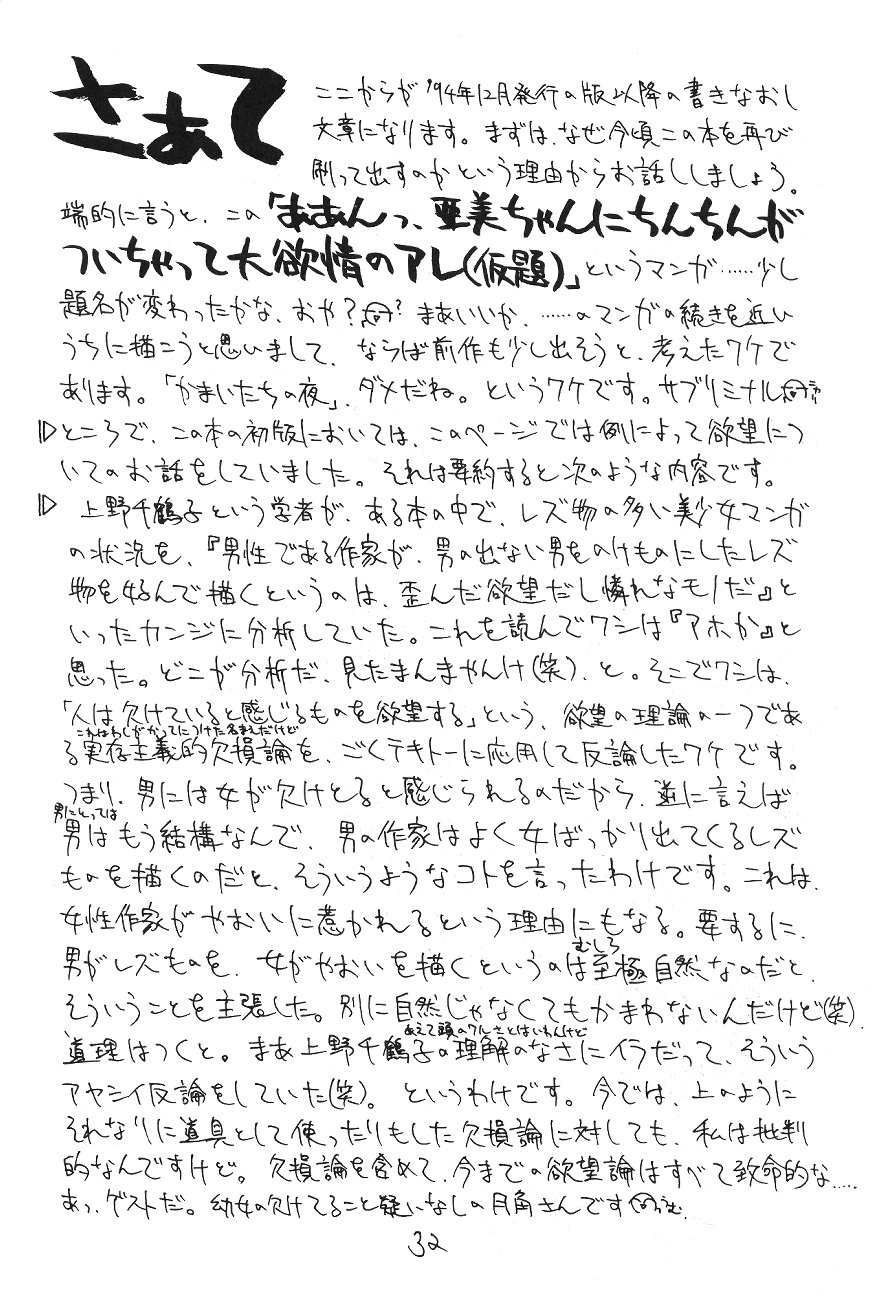 さぁて
ここからが'94年12月発行の版以降の書きなおし
文章になります。まずは、なぜ今頃この本を再び
刷って出すのかという理由からお話ししましょう。
端的に言うと、この「ああんっ、亜美ちゃんにちんちんが
ついちゃって大欲情のアレ(仮題)」というマンガ……少し
題名が変わったかな、おや？？まあいいか、……のマンガの続きを近い
うちに描こうと思いまして、ならば前作も少し出そうと、考えたワケで
あります。「かまいたちの夜」、ダメだね。というワケです。サブリミナル
ところで、この本の初版においては、このページでは例によって欲望につ
いてのお話をしていました。それは要約すると次のような内容です。
上野千鶴子という学者が、ある本の中で、レズ物の多い美少女マンガ
の状況を、『男性である作家が、男の出ない男をのけものにしたレズ
物を好んで描くというのは、歪んだ欲望だし憐れなモノだ』と
いったカンジに分析していた。これを読んでワシは『アホか』と
思った。どこが分析だ、見たまんまやんけ(笑)、と。そこでワシは、
「人は欠けていると感じるものを欲望する」という、欲望の理論の一つであ
これはわしがかってにつけた名まえだけど
る実存主義的欠損論を、ごくテキトーに応用して反論したワケです。
つまり、男には女が欠けとると感じられるのだから、逆に言えば
男にとっては
男はもう結構なんで、男の作家はよく女ばっかり出てくるレズ
ものを描くのだと、そういうようなコトを言ったわけです。これは、
女性作家がやおいに惹かれるという理由にもなる。要するに、
むしろ
男がレズものを、女がやおいを描くというのは至極自然なのだと、
そういうことを主張した。別に自然じゃなくてもかまわないんだけど(笑)、
あえて頭のワルさとはいわんけど
道理はつくと。まあ上野千鶴子の理解のなさにイラだって、そういう
アヤシイ反論をしていた(笑)。というわけです。今では、上のように
それなりに道具として使ったりもした欠損論に対しても、私は批判
的なんですけど。欠損論を含めて、今までの欲望論はすべて致命的な……
あっ、ゲストだ。幼女の欠けてること疑いなしの月角さんです
32